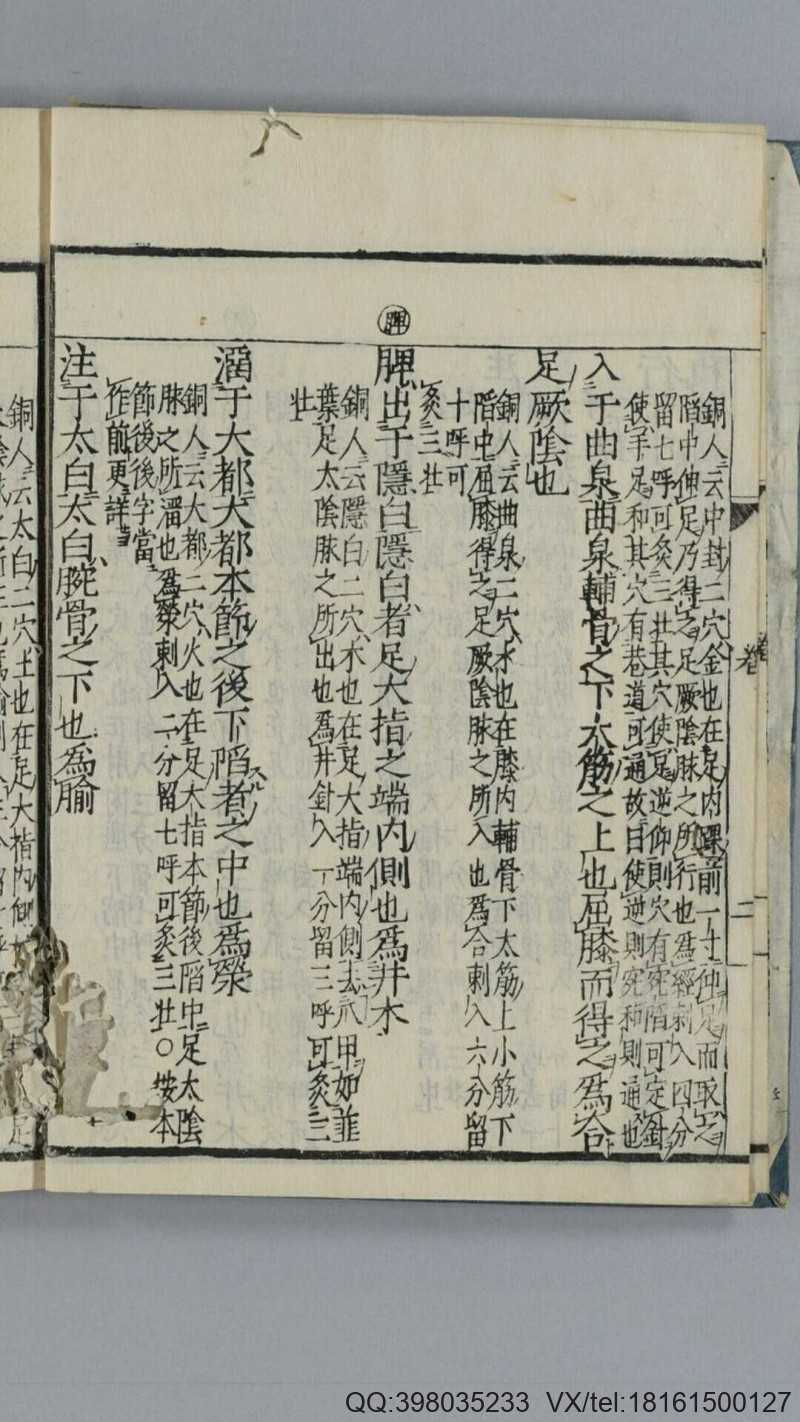 銅人云中封二穴金也在足內踝前一寸伸足而取之
陷中伸足乃得之足厥陰脉之所行也為經刺入四分
留七呼可灸三壯其穴使足逆仰則穴有陷可定針
使手足和其穴有巷道可通故曰使逆則宛使和則通也
入于曲泉曲泉輔骨之下大筋之上也屈膝而得之為合
足厥陰也
銅人云曲泉二穴水也在膝內輔骨下大筋上小筋下
陷中屈膝得之足厥陰脉之所入也為合刺入六分留
十呼可
灸三壯
脾
脾出于隱白隱白者足大指之端內側也為井木
銅人云隱白二穴木也在足大指端內側去爪甲如韮
葉足太陰脉之所出也為井針入一分留三呼可灸三
壯
溜于大都大都本節之後下陷者之中也為滎
銅人云大都二穴火也在足大指本節後陷中足太陰
脉之所溜也為滎刺入二分留七呼可灸三壯○按本
節後後字當
作前更詳
注于太白太白腕骨之下也為腧
銅人云太白二穴土也在足大指內側
卷
二
QQ:398035233 VX/tel:18161500127